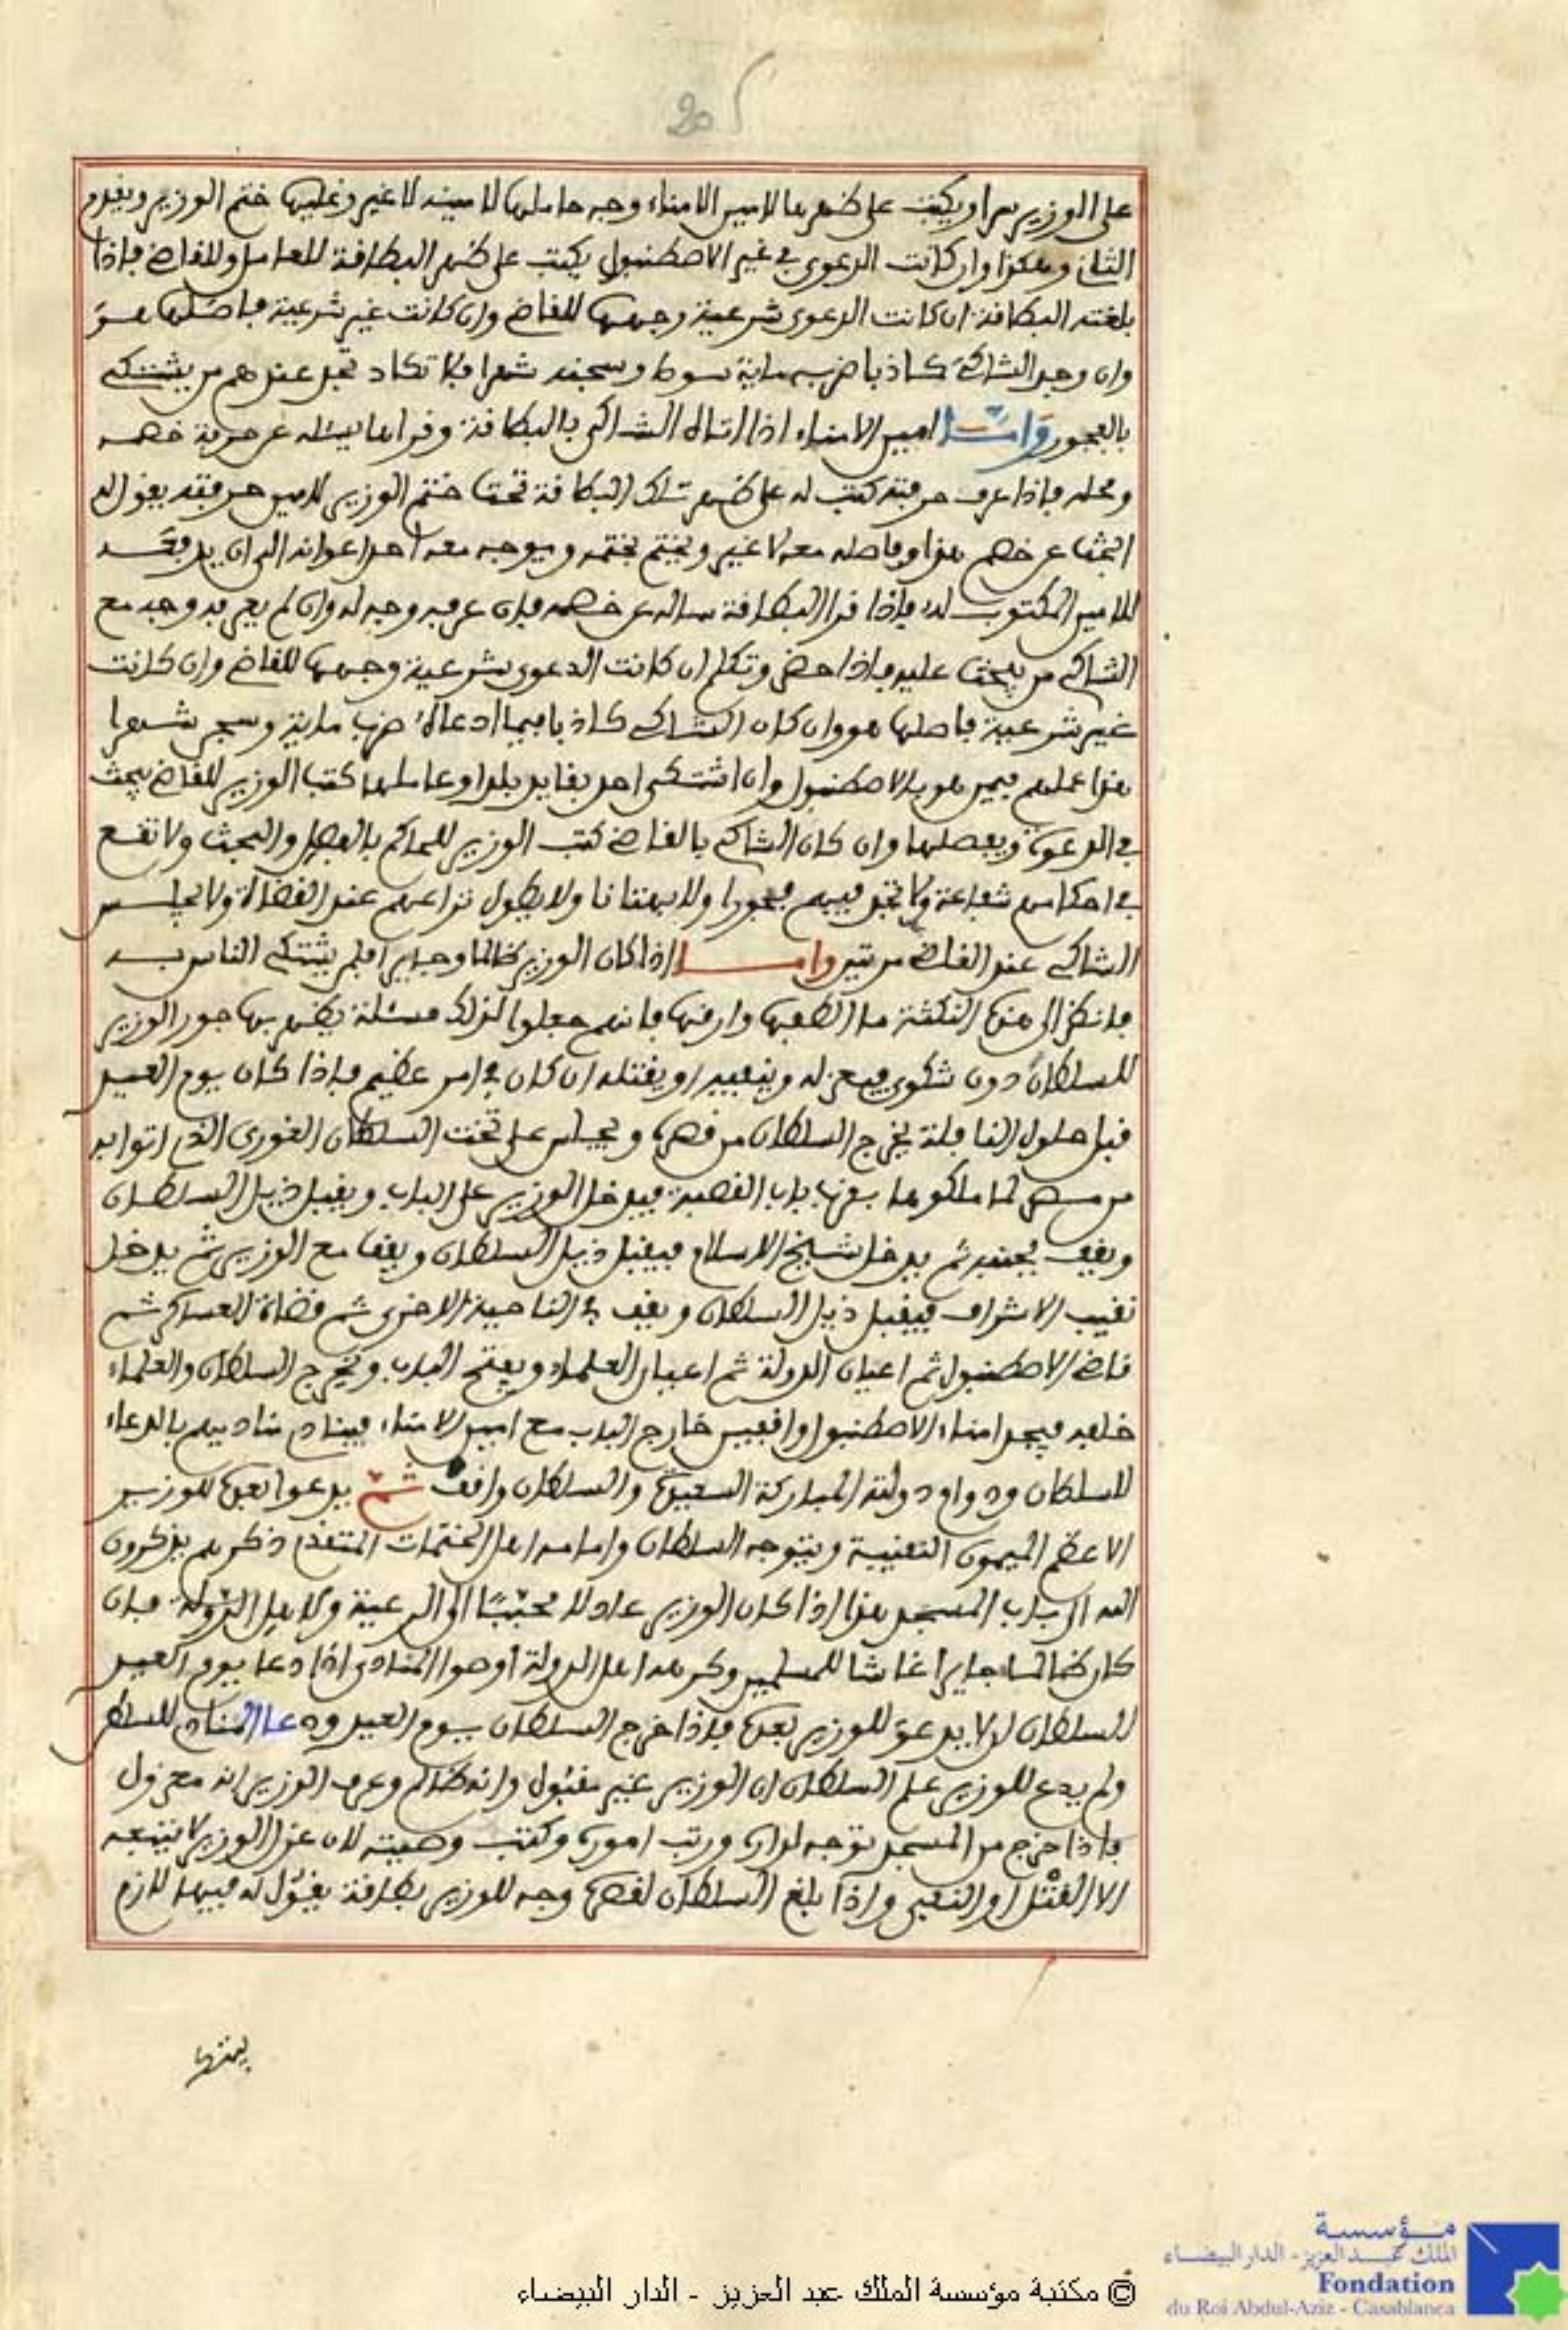 205
على الوزير سرا ويكتب على ظهرها لامير الامناء وجه حاملها لامينه لا غير وعليها ختم الوزير ويقدم
الثاني وهكذا وان كانت الدعوى في غير الاصطنبول يكتب على ظهر البطاقة للعامل وللقاضي فاذا
بلغته البطاقة ان كانت الدعوى شرعية وجهها للقاضي وان كانت غير شرعية فاصلها هو
وان وجد الشاكي كاذبا ضربه ماية سوط وسجنه شهرا فلا تكاد تجد عندهم من يشتكي
بالفجور وامـــا امير الامناء اذا اتاه الشاكي بالبطاقة وقراها يسئله عن حرفة خصمه
ومحله فاذا عرف حرفته كتب له على ظهر تلك البطاقة تحت ختم الوزير لامين حرفته يقول له
ابحث عن خصم هذا وفاصله معه لا غير ويختم بختمه ويوجه معه احد اعوانه الى ان يدفعه
للامين المكتوب له فاذا قرا البطاقة ساله عن خصمه فان عرفه وجه له وان لم يعرفه وجه مع
الشاكي من يبحث عليه فاذا حضر وتكلم ان كانت الدعوى شرعية وجهها للقاضي وان كانت
غير شرعية فاصلها هو وان كان الشاكي كاذبا فيما ادعاه ضرب ماية وسجن شهرا
هذا عملهم فيمن هو بالاصطنبول وان اشتكى احد بقايد بلد او عاملها كتب الوزير للقاضي يبحث
في الدعوى ويفصلها وان كان الشاكي بالقاضي كتب الوزير للحاكم بالفصل والبحث ولا تقع
في احكامهم شفاعة ولا تجد فيهم فجورا ولا بهتانا ولا يطول نزاعهم عند القضاة ولا يجلس
الشاكي عند القاضي مرتين وامـــا اذا كان الوزير ظالما وجايرا فلم يشتكي الناس بـه
فانظر الى هذه النكتة ما الطفها وارقها فانهم جعلوا لذلك مسئلة يظهر بها جور الوزير
للسلطان دون شكوى فيعزله وينفيه او يقتله ان كان في امر عظيم فاذا كان يوم العيد
قبل حلول النافلة يخرج السلطان من قصره ويجلس على تخت السلطان الغوري الذي اتوا به
من مصر لما ملكوها بقرب باب القصبة فيدخل الوزير على الباب ويقبل ذيل السلطان
ويقف بجنبه ثم يدخل شيخ الاسلام فيقبل ذيل السلطان ويقف مع الوزير ثم يدخل
نقيب الاشراف فيقبل ذيل السلطان ويقف في الناحية الاخرى ثم قضاة العساكر ثم
قاضي الاصطنبول ثم اعيان الدولة ثم اعيان العلماء ويفتح الباب ويخرج السلطان والعلماء
خلفه فيجد امناء الاصطنبول واقفين خارج الباب مع امير الامناء فينادي مناديهم بالدعاء
للسلطان ودوام دولته المباركة السعيدة والسلطان واقف ثم يدعوا بعده للوزير
الاعظم الميمون النقيبة ويتوجه السلطان وامامه اهل الختمات المتقدم ذكرهم يذكرون
الله الى باب المسجد هذا اذا كان الوزير عادلا محببا الى الرعية ولاهل الدولة فان
كان ظالما جايرا غاشا للمسلمين وكرهه اهل الدولة اوصوا المنادي اذا دعا يوم العيد
للسلطان ان لا يدعو للوزير بعده فاذا خرج السلطان يوم العيد ودعا المنادي للسلطن
ولم يدع للوزير علم السلطان ان الوزير غير مقبول وانه ظالم وعرف الوزير انه معزول
فاذا خرج من المسجد توجه لداره ورتب اموره وكتب وصيته لان عزل الوزير لا يتبعه
الا القتل او النفي واذا بلغ السلطان لقصره وجه للوزير بطاقة يقول له فيها الازم
© مكتبة مؤسسة الملك عبد العزيز - الدار البيضاء
مؤسسة
الملك عبد العزيز - الدار البيضاء
Fondation
du Roi Abdul-Aziz - Casablanca